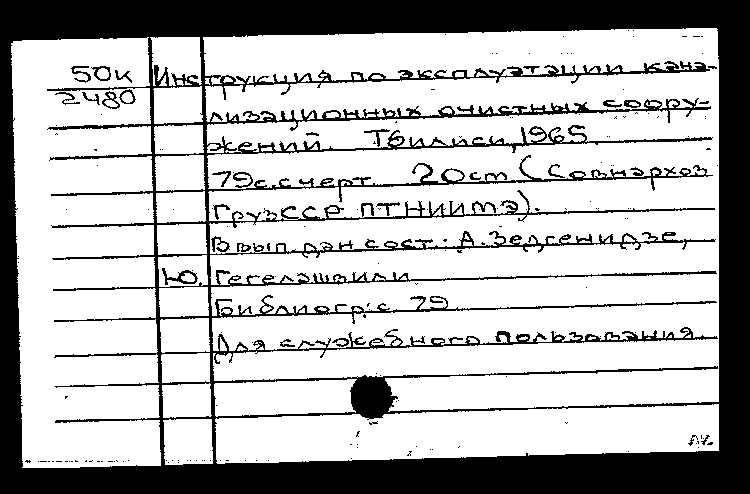 50к Инструкция по эксплуатации кана-
2480 лизационных очистных соору-
жений. Тбилиси, 1965.
79с. с черт. 20см (Совнархоз
ГрузССР ПТНИИМЭ).
В вып. дан сост.: А. Зедгенидзе,
Ю. Гегелашвили.
Библиогр: с. 79
Для служебного пользования.